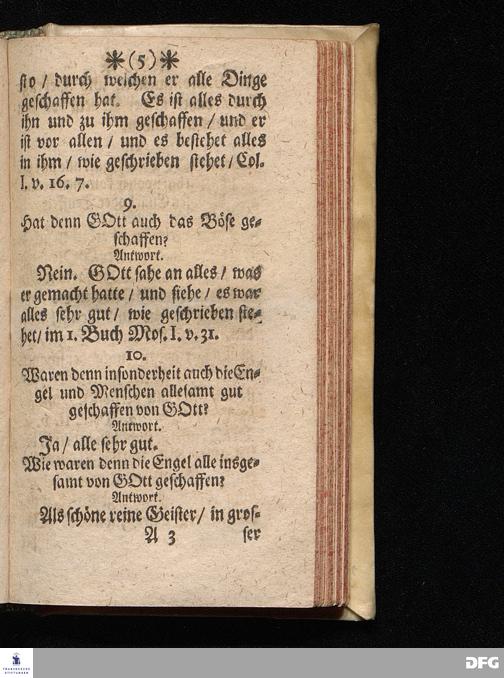 *(5)*
sto / durch welchen er alle Dinge
geschaffen hat. Es ist alles durch
ihn und zu ihm geschaffen / und er
ist vor allen / und es bestehet alles
in ihm / wie geschrieben stehet / Col.
I. v. 16. 7.
9.
Hat denn GOtt auch das Böse ge-
schaffen?
Antwort.
Nein. GOtt sahe an alles / was
er gemacht hatte / und siehe / es war
alles sehr gut / wie geschrieben ste-
het / im 1. Buch Mos. I. v. 31.
10.
Waren denn insonderheit auch die En-
gel und Menschen allesamt gut
geschaffen von GOtt?
Antwort.
Ja / alle sehr gut.
Wie waren denn die Engel alle insge-
samt von GOtt geschaffen?
Antwort.
Als schöne reine Geister / in gros-
A 3 ser
FRANCKESCHE
STIFTUNGEN
DFG